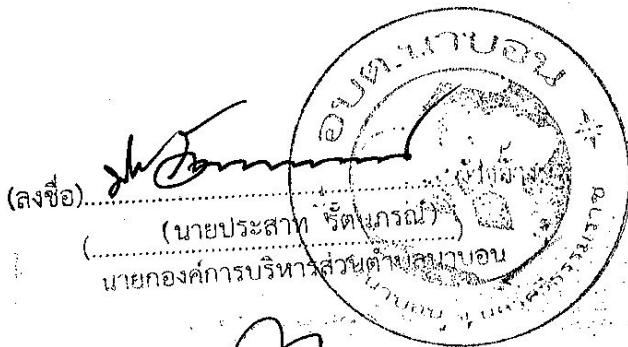 อบต.นาบอน
(ลงชื่อ)..............................ผู้ว่าจ้าง
(.........(นายประสาท รัตนภรณ์).........)
นายกองค์การบริหารส่วนตำบลนาบอน
นาบอน จ.นครศรีธรรมราช